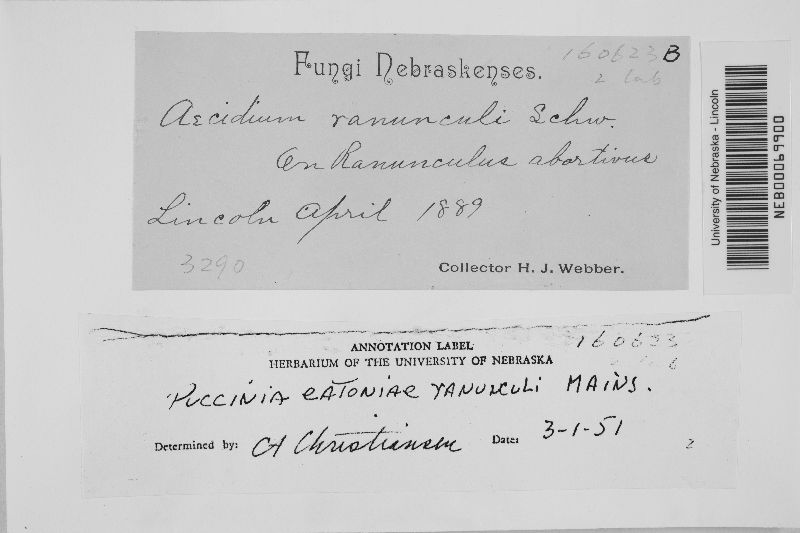 Fungi Nebraskenses.
160623 B
2 lab
Aecidium ranunculi Schw.
On Ranunculus abortivus
Lincoln April 1889
3290
Collector H. J. Webber.
University of Nebraska - Lincoln
NEB00069900
ANNOTATION LABEL
160633
HERBARIUM OF THE UNIVERSITY OF NEBRASKA
PUCCINIA EATONIAE RANUNCULI MAINS.
Determined by: Christiansen Date: 3-1-51
2